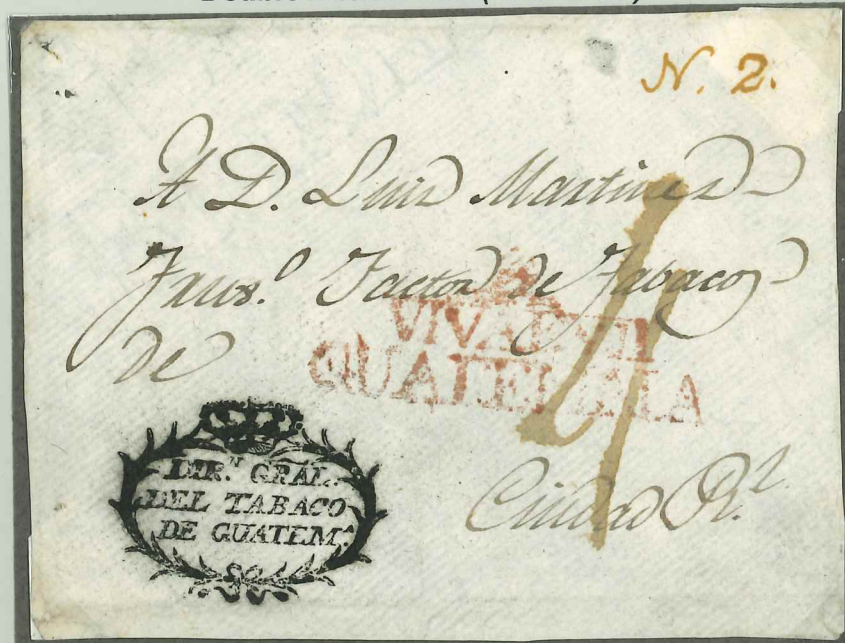 N. 2.
A D. Luis Martinez
Factor de Tabacos
de
GUATEMALA
4
Ciudad R.l
DIR.N GRAL.
DEL TABACO
DE GUATEM.A